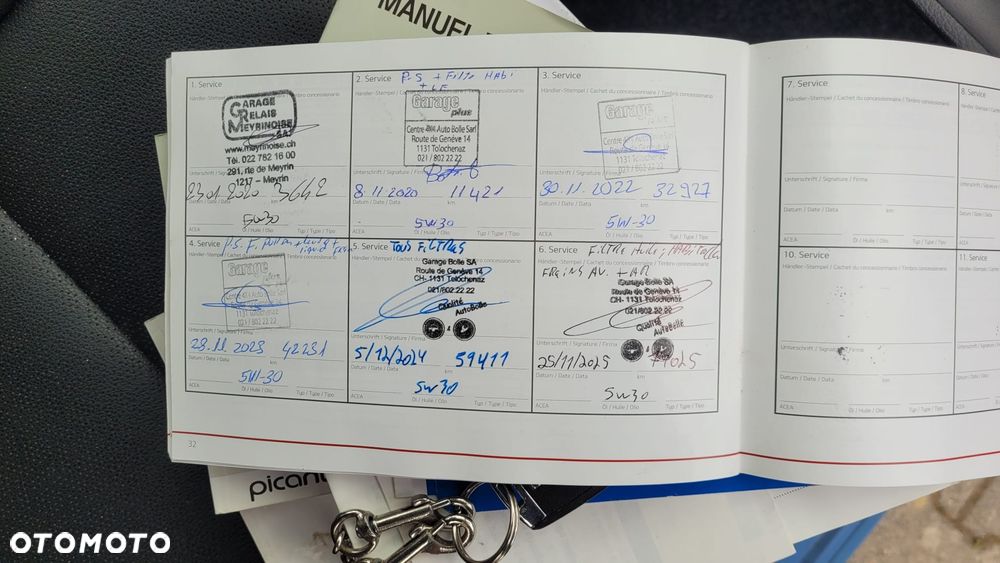 MANUEL
1. Service
Händler-Stempel / Cachet du concessionnaire / Timbro concessionario
GARAGE
RELAIS
MEYRINOISE
SAT
www.meyrinoise.ch
Tél. 022 782 16 00
291, rte de Meyrin
1217 – Meyrin
Unterschrift / Signature / Firma
23 01 2020 3642
Datum / Date / Data km
5W30
ACEA Öl / Huile / Olio Typ / Type / Tipo
2. Service P.S + Filtre HABi
Händler-Stempel / Cachet du concessionnaire / Timbro concessionario
Garage
plus
Centre 4X4 Auto Bolle Sarl
Route de Genève 14
1131 Tolochenaz
021 / 802 22 22
Unterschrift / Signature / Firma
8.11.2020 11421
Datum / Date / Data km
5W30
ACEA Öl / Huile / Olio Typ / Type / Tipo
3. Service
Händler-Stempel / Cachet du concessionnaire / Timbro concessionario
Garage
1131 Tolochenaz
021 / 802 22 22
Unterschrift / Signature / Firma
30.11.2022 32927
Datum / Date / Data km
5W-30
ACEA Öl / Huile / Olio Typ / Type / Tipo
4. Service P.S. F.
Händler-Stempel / Cachet du concessionnaire / Timbro concessionario
Garage
1131 Tolochenaz
021 / 802 22 22
Unterschrift / Signature / Firma
28.11.2023 42231
Datum / Date / Data km
5W-30
ACEA Öl / Huile / Olio Typ / Type / Tipo
5. Service TOUS FILTRES
Garage Bolle SA
Route de Genève 14
CH- 1131 Tolochenaz
021/802.22.22
Qualité
AutoBolle
&
Unterschrift / Signature / Firma
5/12/2024 59411
Datum / Date / Data km
5W30
ACEA Öl / Huile / Olio Typ / Type / Tipo
6. Service FILTRE Huile,
Händler-Stempel / Cachet du concessionnaire / Timbro concessionario
FREINS AV. + AR
Garage Bolle SA
Route de Genève 14
CH- 1131 Tolochenaz
021/802.22.22
Qualité
AutoBolle
&
Unterschrift / Signature / Firma
25/11/2025
Datum / Date / Data km
5W30
ACEA Öl / Huile / Olio Typ / Type / Tipo
32
7. Service
Händler-Stempel / Cachet du concessionnaire / Timbro concessionario
Unterschrift / Signature / Firma
Datum / Date / Data km
ACEA Öl / Huile / Olio Typ / Type / Tipo
8. Service
Händler-Stempel
Unterschrift
Datum / Date
ACEA
10. Service
Händler-Stempel / Cachet du concessionnaire / Timbro concessionario
Unterschrift / Signature / Firma
Datum / Date / Data km
ACEA Öl / Huile / Olio Typ / Type / Tipo
11. Service
Händler-Stempel
Unterschrift
Datum / Date
ACEA
OTOMOTO